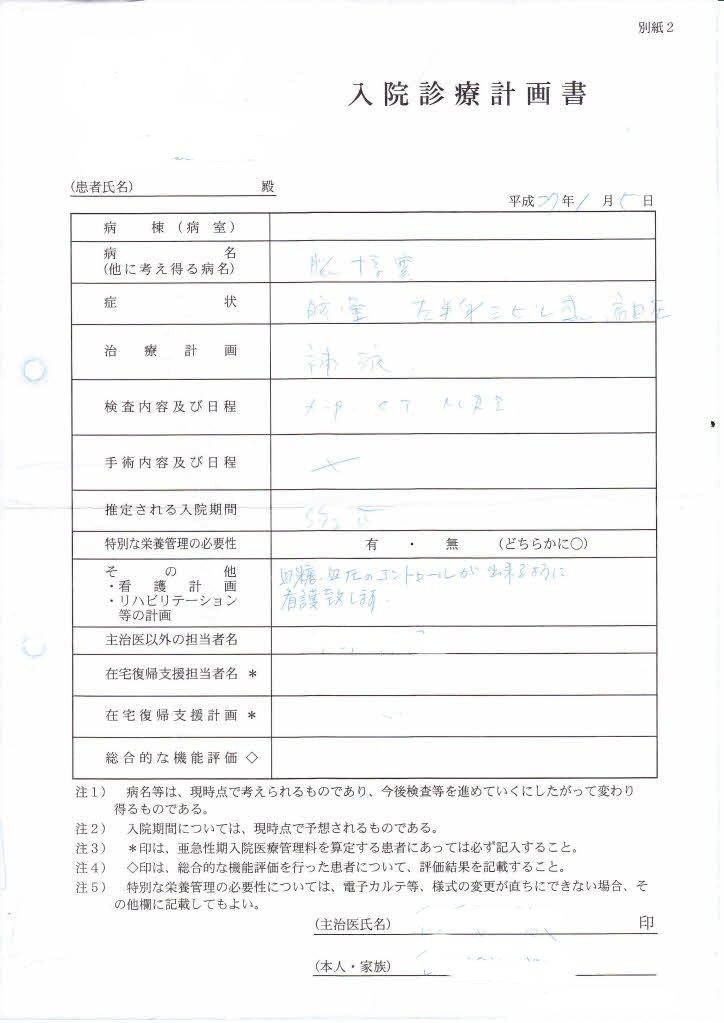 別紙2
入院診療計画書
(患者氏名) 殿
平成27年1月5日
病棟(病室)
病名
(他に考え得る病名)
脳梗塞
症状
左半身シビレ感、高血圧
治療計画
補液
検査内容及び日程
X-P. CT
手術内容及び日程
推定される入院期間
特別な栄養管理の必要性 有・無 (どちらかに○)
その他
・看護計画
・リハビリテーション
等の計画
血糖、血圧のコントロールが出来るように
看護致します.
主治医以外の担当者名
在宅復帰支援担当者名 *
在宅復帰支援計画 *
総合的な機能評価 ◇
注1) 病名等は、現時点で考えられるものであり、今後検査等を進めていくにしたがって変わり
得るものである。
注2) 入院期間については、現時点で予想されるものである。
注3) *印は、亜急性期入院医療管理料を算定する患者にあっては必ず記入すること。
注4) ◇印は、総合的な機能評価を行った患者について、評価結果を記載すること。
注5) 特別な栄養管理の必要性については、電子カルテ等、様式の変更が直ちにできない場合、そ
の他欄に記載してもよい。
(主治医氏名) 印
(本人・家族)